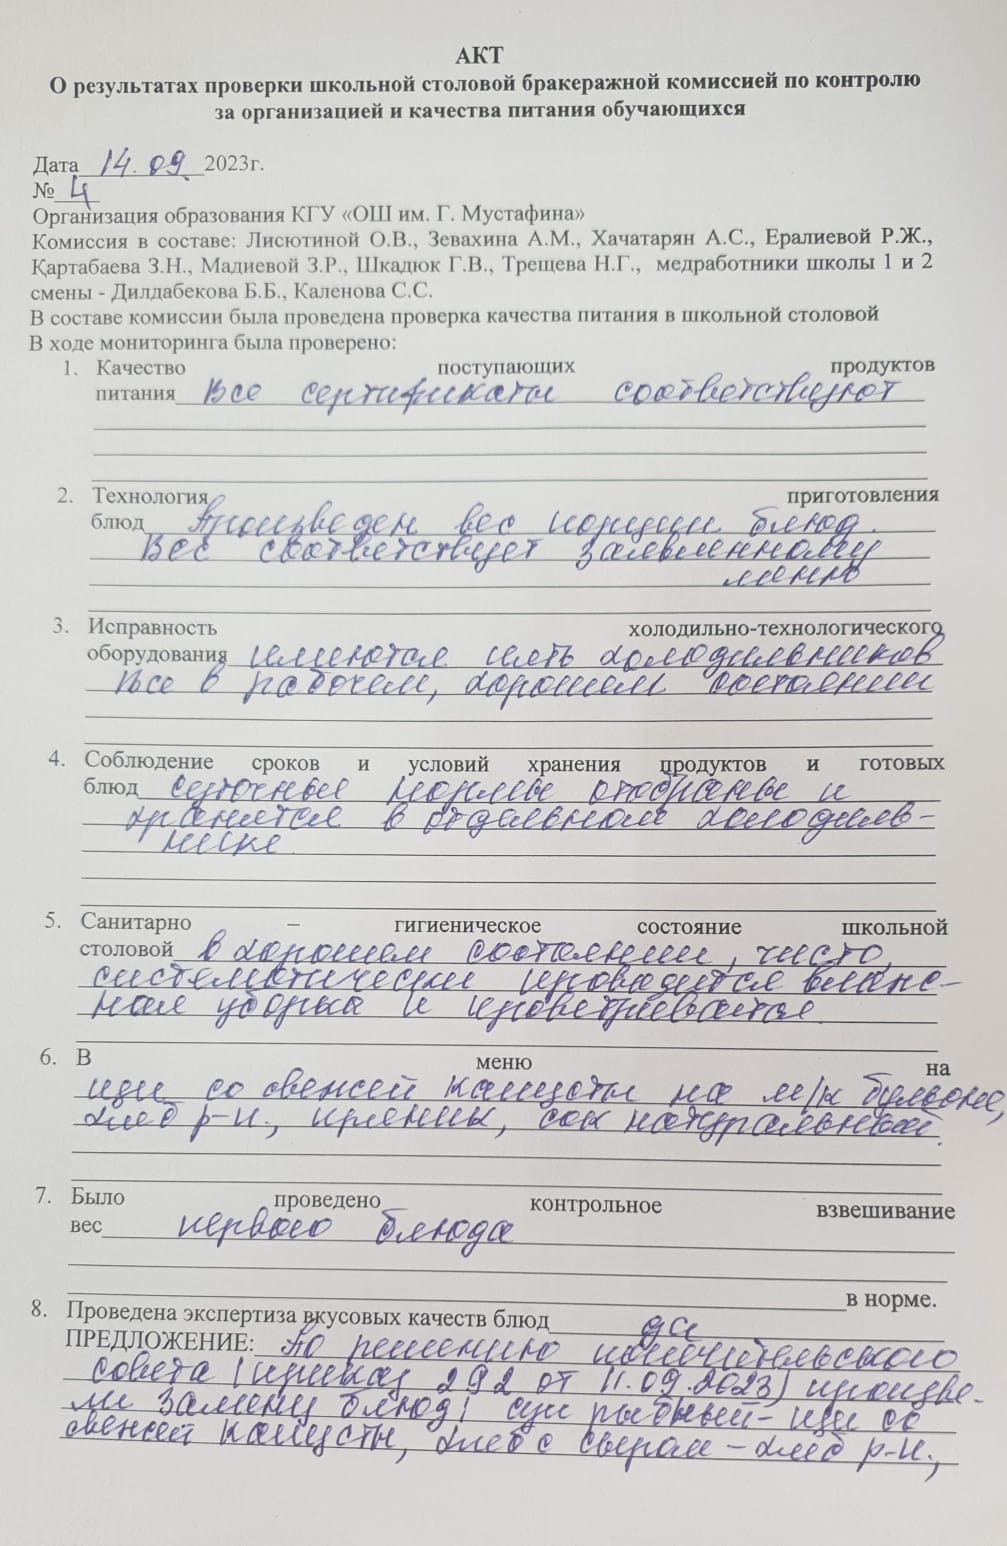 АКТ
О результатах проверки школьной столовой бракеражной комиссией по контролю
за организацией и качества питания обучающихся
Дата 14.09. 2023г.
№ 4
Организация образования КГУ «ОШ им. Г. Мустафина»
Комиссия в составе: Лисютиной О.В., Зевахина А.М., Хачатарян А.С., Ералиевой Р.Ж.,
Қартабаева З.Н., Мадиевой З.Р., Шкадюк Г.В., Трещева Н.Г., медработники школы 1 и 2
смены - Дилдабекова Б.Б., Каленова С.С.
В составе комиссии была проведена проверка качества питания в школьной столовой
В ходе мониторинга была проверено:
1. Качество поступающих продуктов
питания Все сертификаты соответствуют
2. Технология приготовления
блюд Произведен вес порции блюд.
Вес соответствует заявленному
меню
3. Исправность холодильно-технологического
оборудования имеются пять холодильников
Все в рабочем, хорошем состоянии
4. Соблюдение сроков и условий хранения продуктов и готовых
блюд суточные нормы отобраны и
хранятся в отдельном холодиль-
нике.
5. Санитарно – гигиеническое состояние школьной
столовой в хорошем состоянии, чисто,
систематически проводится влаж-
ная уборка и проветривается.
6. В меню на
щи со свежей капусты на м/к бульоне,
хлеб р-п., пряник, сок натуральный.
7. Было проведено контрольное взвешивание
вес первого блюда
в норме.
8. Проведена экспертиза вкусовых качеств блюд да
ПРЕДЛОЖЕНИЕ: По решению попечительского
совета (приказ 292 от 11.09.2023) произве-
ли замену блюд: суп рыбный - щи со
свежей капусты, хлеб с сыром – хлеб р-п.,